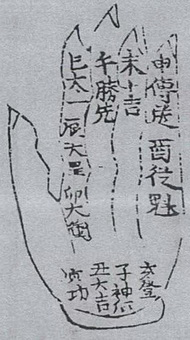 申傳送 酉從魁
未小吉
午勝先
巳太一 辰天罡 卯大衝
亥登
子神后
丑大吉
寅功